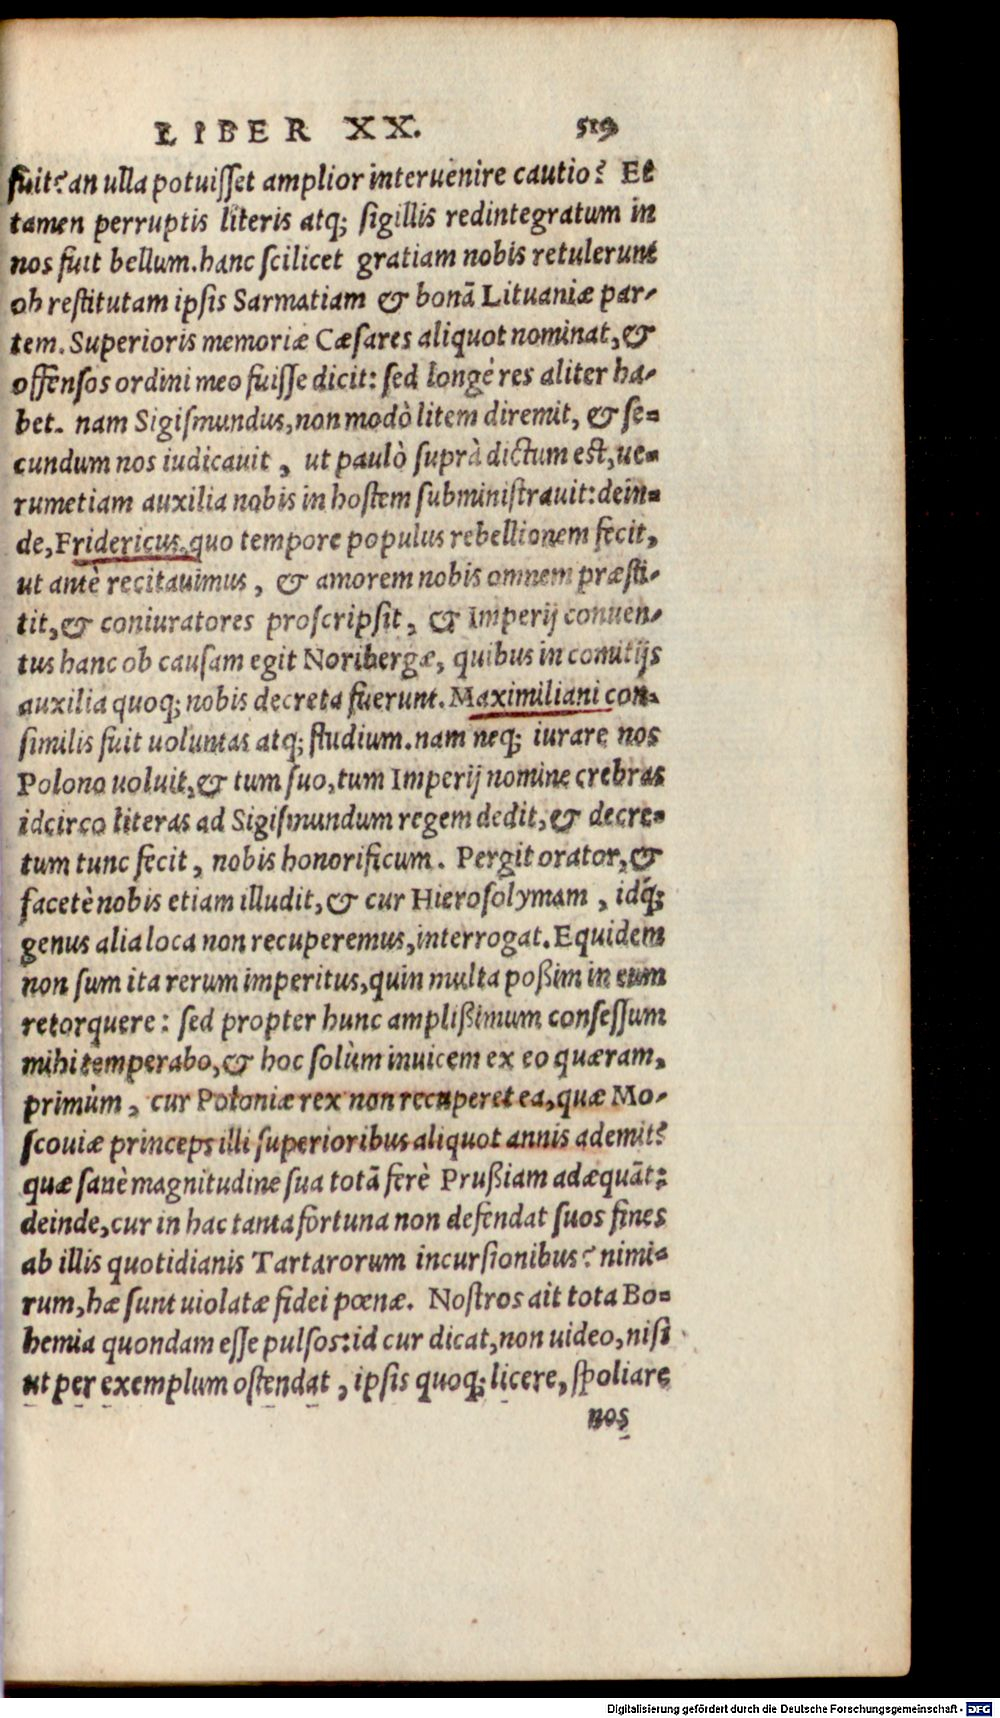 LIBER XX. 519
fuit? an ulla potuisset amplior interuenire cautio? Et
tamen perruptis literis atq; sigillis redintegratum in
nos fuit bellum. hanc scilicet gratiam nobis retulerunt
ob restitutam ipsis Sarmatiam & bonã Lituaniæ par-
tem. Superioris memoriæ Cæsares aliquot nominat, &
offensos ordini meo fuisse dicit: sed longè res aliter ha-
bet. nam Sigismundus, non modò litem diremit, & se-
cundum nos iudicauit, ut paulò suprà dictum est, ue-
rumetiam auxilia nobis in hostem subministrauit: dein-
de, Fridericus, quo tempore populus rebellionem fecit,
ut antè recitauimus, & amorem nobis omnem præsti-
tit, & coniuratores proscripsit, & Imperij conuen-
tus hanc ob causam egit Noribergæ, quibus in comitijs
auxilia quoq; nobis decreta fuerunt. Maximiliani con-
similis fuit uoluntas atq; studium. nam neq; iurare nos
Polono uoluit, & tum suo, tum Imperij nomine crebras
idcirco literas ad Sigismundum regem dedit, & decre-
tum tunc fecit, nobis honorificum. Pergit orator, &
facetè nobis etiam illudit, & cur Hierosolymam, idq́;
genus alia loca non recuperemus, interrogat. Equidem
non sum ita rerum imperitus, quin multa poßim in eum
retorquere: sed propter hunc amplißimum consessum
mihi temperabo, & hoc solùm inuicem ex eo quæram,
primùm, cur Poloniæ rex non recuperet ea, quæ Mo-
scouiæ princeps illi superioribus aliquot annis ademit?
quæ sanè magnitudine sua totã ferè Prußiam adæquãt:
deinde, cur in hac tanta fortuna non defendat suos fines
ab illis quotidianis Tartarorum incursionibus? nimi-
rum, hæ sunt uiolatæ fidei pœnæ. Nostros ait tota Bo-
hemia quondam esse pulsos: id cur dicat, non uideo, nisi
ut per exemplum ostendat, ipsis quoq; licere, spoliare
nos
Digitalisierung gefördert durch die Deutsche Forschungsgemeinschaft - DFG